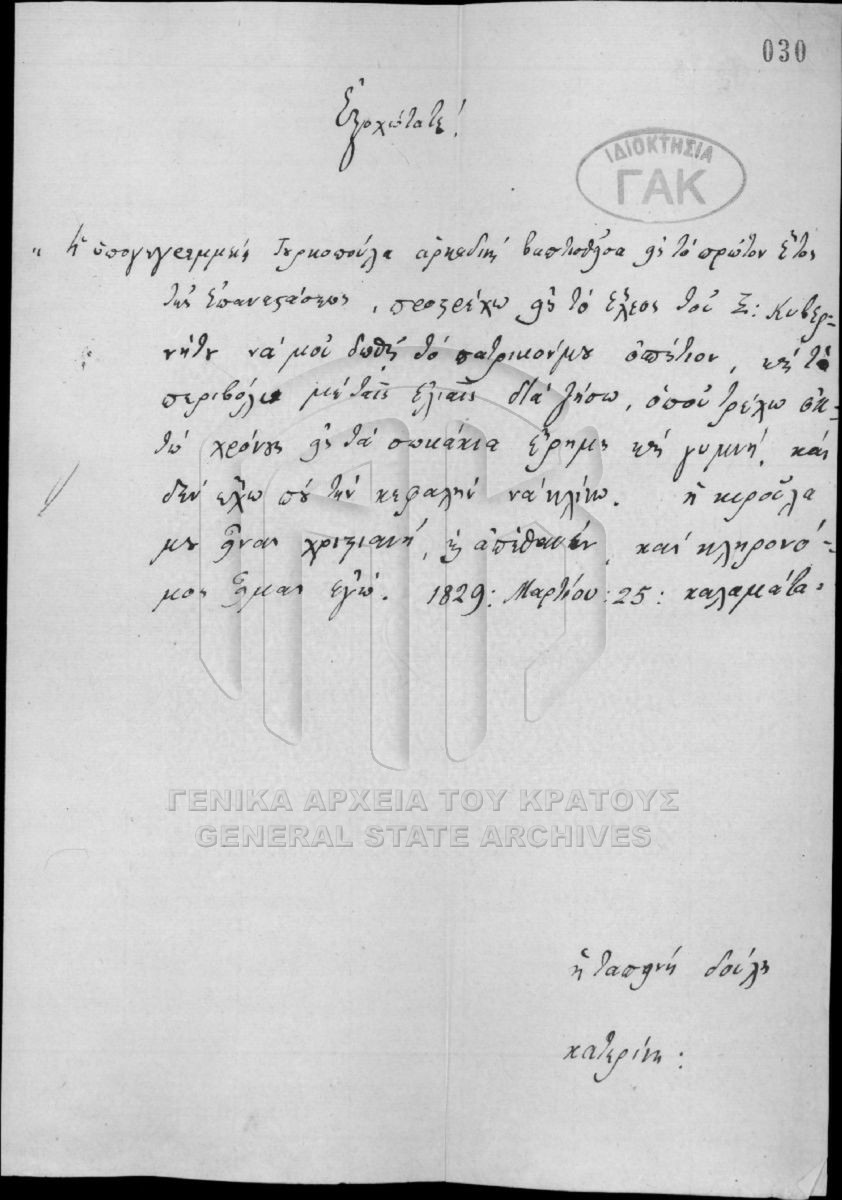 030
Ἐξοχώτατε!
ΙΔΙΟΚΤΗΣΙΑ
ΓΑΚ
Ἡ ὑπογεγραμμένη Τουρκοπούλα ἀρκαδινὴ βαπτισθεῖσα εἰς τὸ πρῶτον ἔτος
τῆς ἐπαναστάσεως, προστρέχω εἰς τὸ ἔλεος τοῦ Σ: Κυβερ-
νήτου νὰ μοῦ δωθῇ τὸ πατρικόν μου ὁσπήτιον, καὶ τὸ
περιβόλι μὲ ταῖς ἐλιαῖς διὰ ζήσω, ὁποῦ τρέχω ὀκ-
τὼ χρόνους εἰς τὰ σωκάκια ἔρημη καὶ γυμνή, καὶ
δὲν ἔχω ποῦ τὴν κεφαλὴν νὰ κλίνω. ἡ κυροῦλα
μου εἶναι χριστιανὴ, καὶ ἀπέθανεν, καὶ κληρονό-
μος εἶμαι ἐγώ. 1829: Μαρτίου: 25: καλαμάτα.
ΓΕΝΙΚΑ ΑΡΧΕΙΑ ΤΟΥ ΚΡΑΤΟΥΣ
GENERAL STATE ARCHIVES
ἡ ταπεινὴ δούλη
κατερίνη: